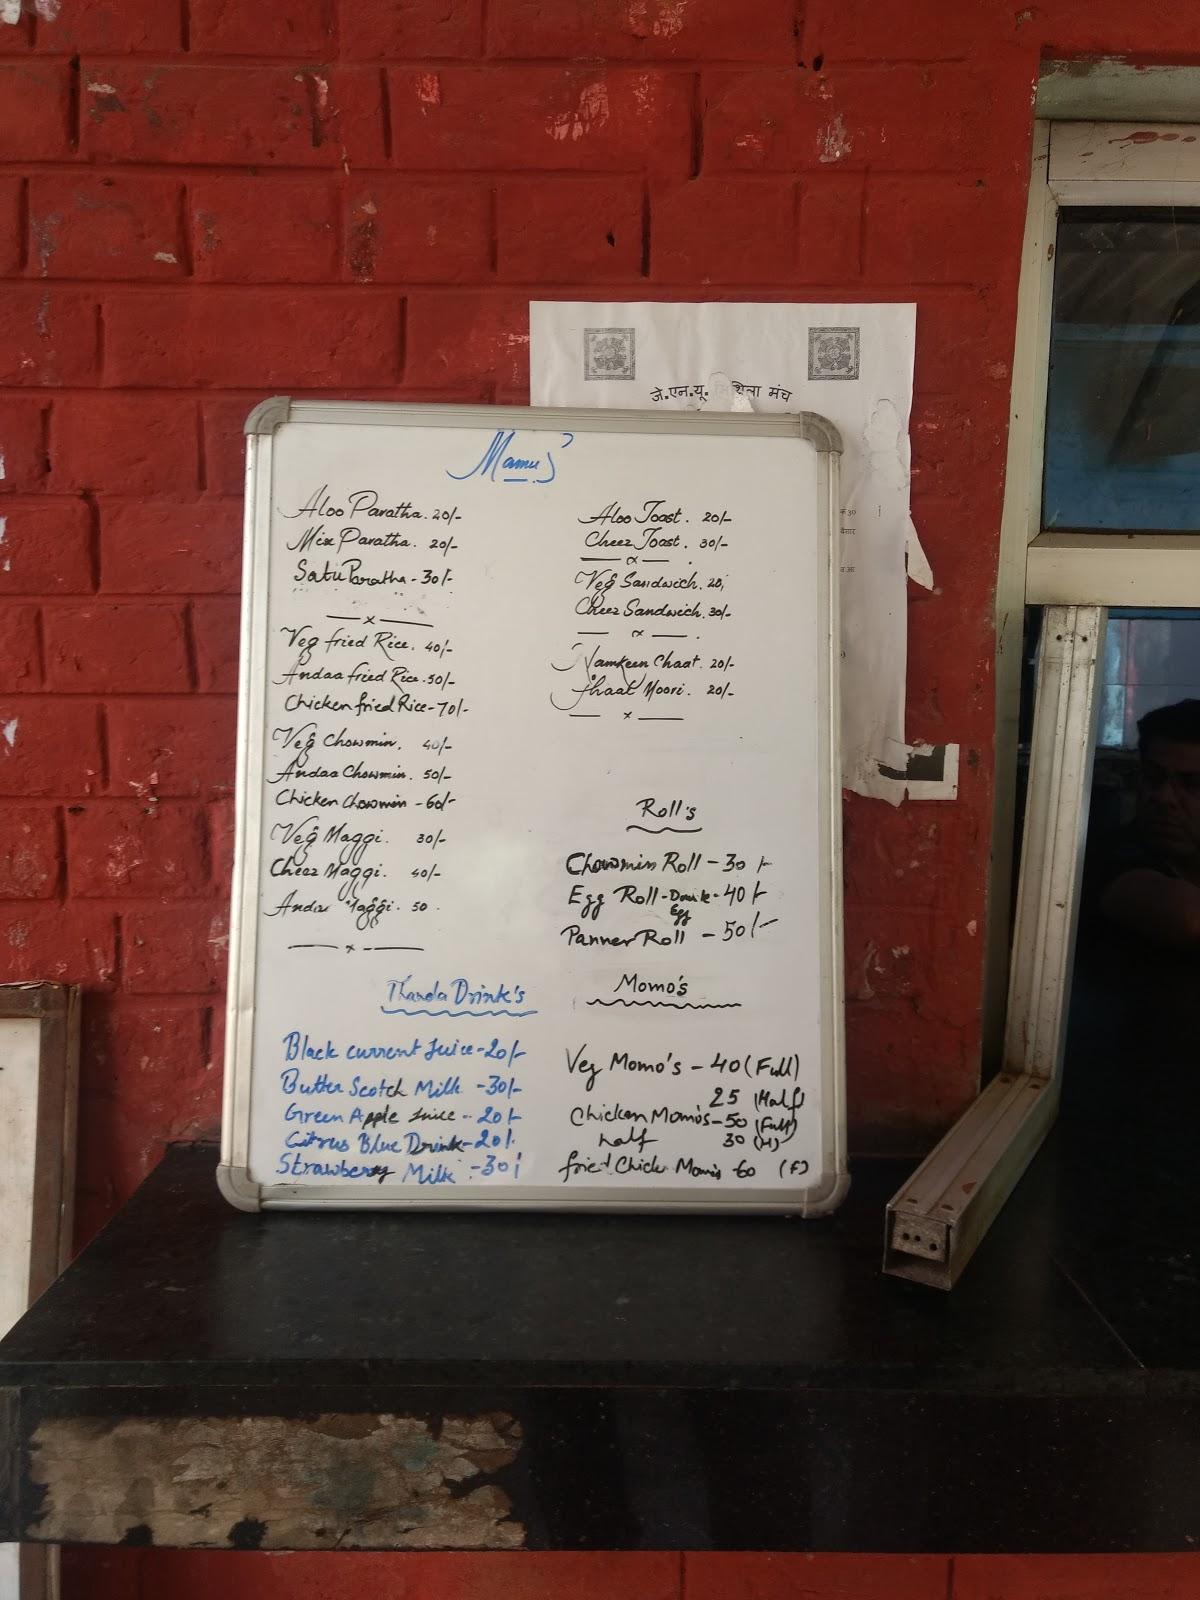 जे.एन.यू. मिथिला मंच
Mamu's
Aloo Paratha. 20/-
Mix Paratha. 20/-
Satu Paratha - 30/-
x
Veg fried Rice. 40/-
Andaa fried Rice. 50/-
Chicken fried Rice - 70/-
Veg Chowmin. 40/-
Andaa Chowmin. 50/-
Chicken Chowmin - 60/-
Veg Maggi. 30/-
Cheez Maggi. 40/-
Andaa Maggi. 50
x
Thanda Drink's
Black current Juice - 20/-
Butter Scotch Milk - 30/-
Green Apple Juice - 20/-
Citrus Blue Drink - 20/-
Strawberry Milk - 30/
Aloo Toast. 20/-
Cheez Toast. 30/-
x
Veg Sandwich. 20/
Cheez Sandwich. 30/-
x
Namkeen Chaat. 20/-
Jhaal Moori. 20/-
x
Roll's
Chowmin Roll - 30/-
Egg Roll - - 40/-
Egg
Panner Roll - 50/-
Momo's
Veg Momo's - 40 (Full)
25 (Half)
Chicken Momo's - 50 (Full)
half 30 (H)
fried Chick Momo's - 60 (F)